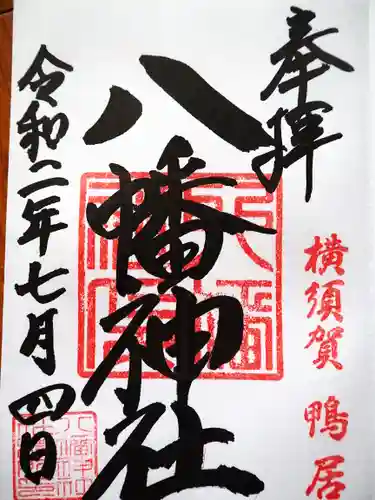 奉拝
横須賀 鴨居
八幡神社
令和二年七月四日